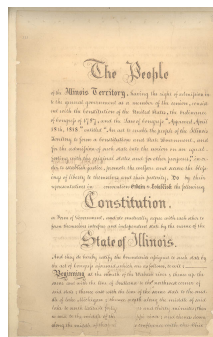 The People
of the Illinois Territory, having the right of admission in
to the general government as a member of the union, consist
ent with the Constitution of the United States, the Ordinance
of Congress of 1787, and the Law of Congress "Approved April
18th, 1818" entitled "An act to enable the people of the Illinois
Territory to form a Constitution and State Government, and
for the admission of such state into the union on an equal
footing with the original states and for other purposes," in or-
der to establish justice, promote the welfare and secure the bless
ings of liberty to themselves and their posterity, Do by their
representatives in convention Ordain & Establish the following
Constitution
or Form of Government, and do mutually agree with each other to
form themselves into a free and independent state by the name of the
State of Illinois.
And they do hereby ratify the boundaries assigned to such state by
the act of Congress aforesaid which are as follows, to wit:
Beginning at the mouth of the Wabash river, thence up the
same and with the line of Indiana to the northwest corner of
said state, thence east with the line of the same state to the middle
of lake Michigan, thence north along the middle of said
lake to north latitude forty